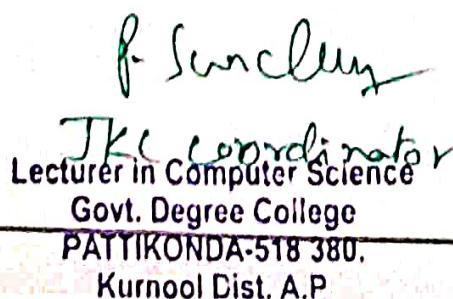 JKC coordinator
Lecturer in Computer Science
Govt. Degree College
PATTIKONDA-518 380.
Kurnool Dist. A.P